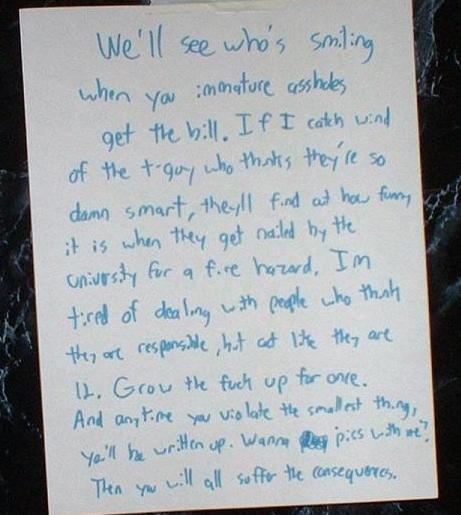 We'll see who's smiling
when you immature assholes
get the bill. If I catch wind
of the t-guy who thinks they're so
damn smart, they'll find out how funny
it is when they get nailed by the
university for a fire hazard. I'm
tired of dealing with people who think
they are responsible, but act like they are
12. Grow the fuck up for once.
And anytime you violate the smallest thing,
ya'll be written up. Wanna pics with me?
Then you will all suffer the consequences.